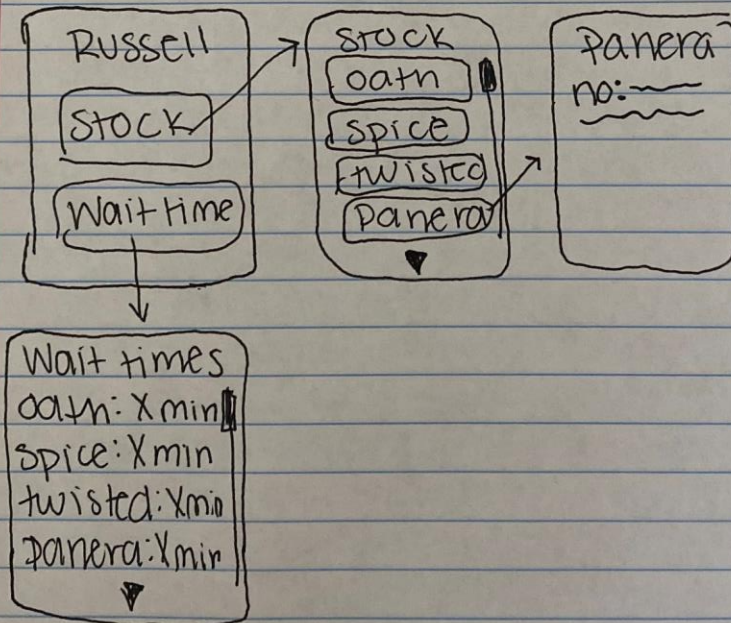 Russell
Stock
Wait time
Stock
oath
spice
twisted
panera
panera
no:
Wait times
oath: X min
spice: X min
twisted: X min
panera: X min